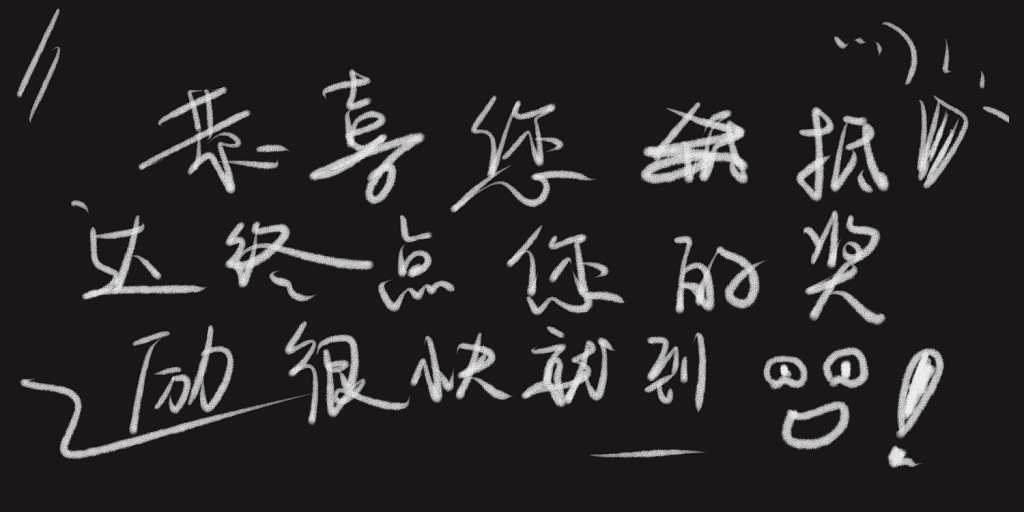 恭喜您抵
达终点您的奖
励很快就到!